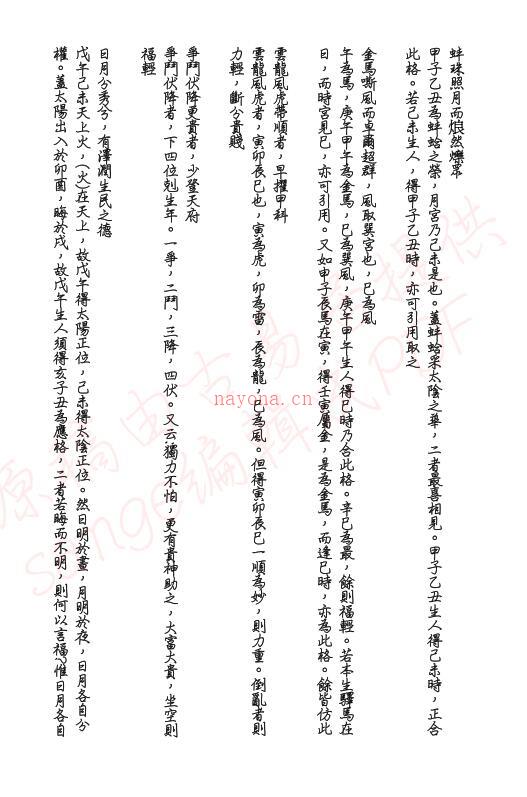 蚌珠照月而烺然爍眾
甲子乙丑為蚌蛤之榮，月宮乃己未是也。蓋蚌蛤采太陰之華，二者最喜相見。甲子乙丑生人得己未時，正合
此格。若己未生人，得甲子乙丑時，亦可引用取之
金馬嘶風而卓爾超群，風取巽宮也，巳為風
午為馬，庚午甲午為金馬，巳為巽風，庚午甲午生人得巳時乃合此格。辛巳為最，餘則福輕。若本生驛馬在
日，而時宮見巳，亦可引用。又如甲子辰馬在寅，得壬寅屬金，是為金馬，而逢巳時，亦為此格。餘皆仿此
雲龍風虎帶順者，早擢甲科
雲龍風虎者，寅卯辰巳也，寅為虎，卯為雷，辰為龍，巳為風。但得寅卯辰巳一順為妙，則力重。倒亂者則
力輕，斷分貴賤
爭鬥伏降更貴者，少登天府
爭鬥伏降者，下四位剋生年。一爭，二鬥，三降，四伏。又云獨力不怕，更有貴神助之，大富大貴，坐空則
福輕
日月分秀兮，有澤潤生民之德
戊午己未天上火，〈火〉在天上，故戊午得太陽正位，己未得太陰正位。然日明於晝，月明於夜，日月各自分
權。蓋太陽出入於卯酉，晦於戌，故戊午生人須得亥子丑為應格，二者若晦而不明，則何以言福？惟日月各自
原稿由古易
提供
编輯
PDF
nayona.cn